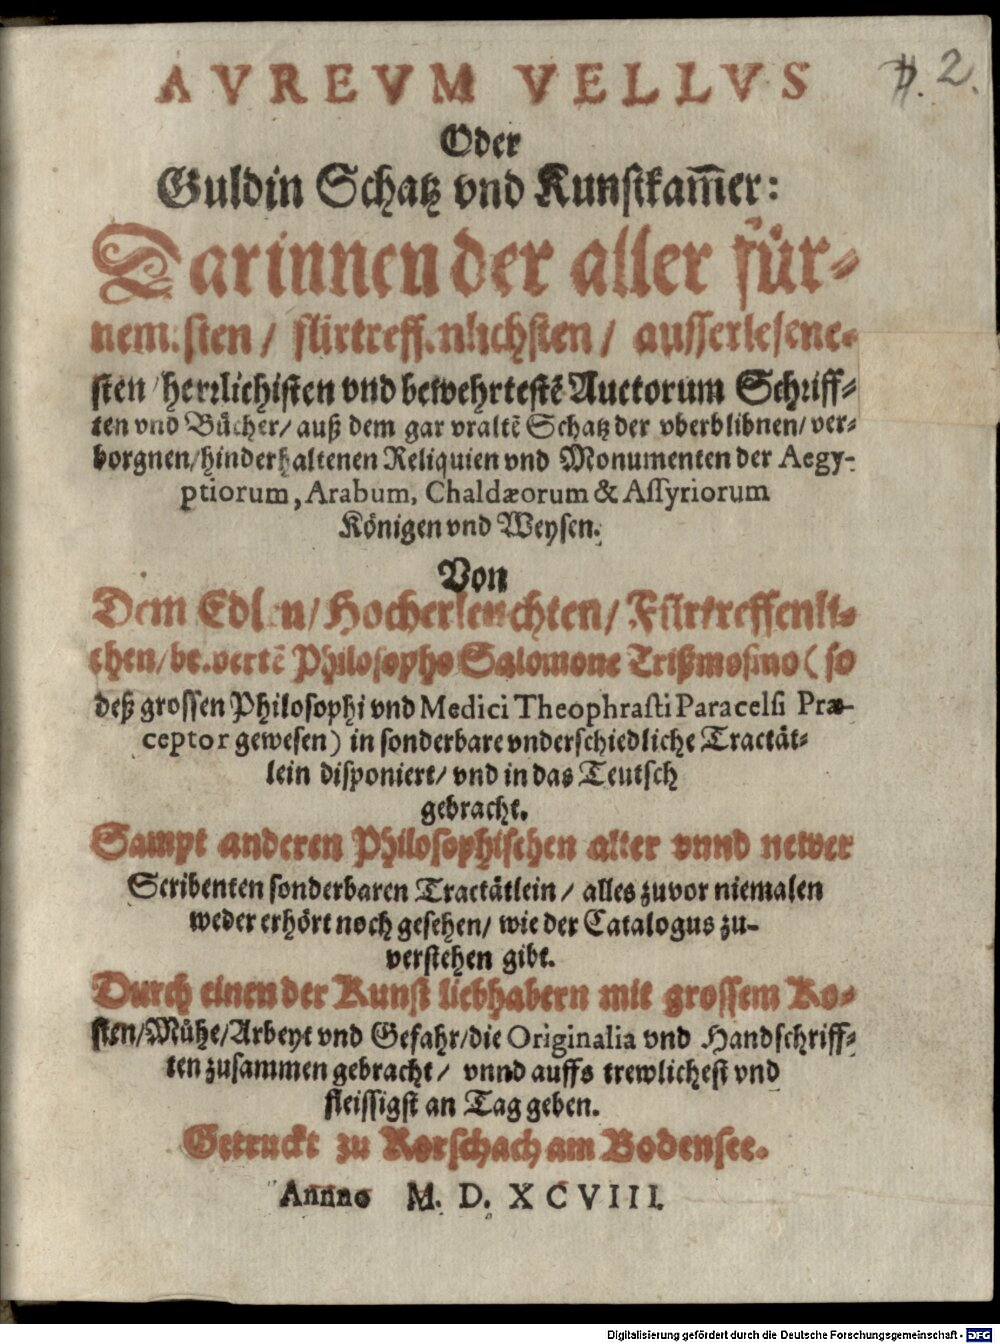 AVREVM VELLVS
₰. 2.
Oder
Guldin Schatz vnd Kunstkam̄er:
Darinnen der aller für-
nemsten / fürtreffenlichsten / ausserlesene-
sten / herrlichisten vnd bewehrtestē Auctorum Schriff-
ten vnd Bücher / auß dem gar vraltē Schatz der vberblibnen / ver-
borgnen / hinderhaltenen Reliquien vnd Monumenten der Aegy-
ptiorum, Arabum, Chaldæorum & Assyriorum
Königen vnd Weysen.
Von
Dem Edlen / Hocherleuchten / Fürtreffenli-
chen / bewertē Philosopho Salomone Trißmosino (so
deß grossen Philosophi vnd Medici Theophrasti Paracelsi Præ-
ceptor gewesen) in sonderbare vnderschiedliche Tractät-
lein disponiert / vnd in das Teutsch
gebracht.
Sampt anderen Philosophischen alter vnnd newer
Scribenten sonderbaren Tractätlein / alles zuvor niemalen
weder erhört noch gesehen / wie der Catalogus zu-
verstehen gibt.
Durch einen der Kunst liebhabern mit grossem Ko-
sten / Mühe / Arbeyt vnd Gefahr / die Originalia vnd Handschriff-
ten zusammen gebracht / vnnd auffs trewlichest vnd
fleissigst an Tag geben.
Getruckt zu Rorschach am Bodensee.
Annno M. D. XCVIII.
Digitalisierung gefördert durch die Deutsche Forschungsgemeinschaft - DFG